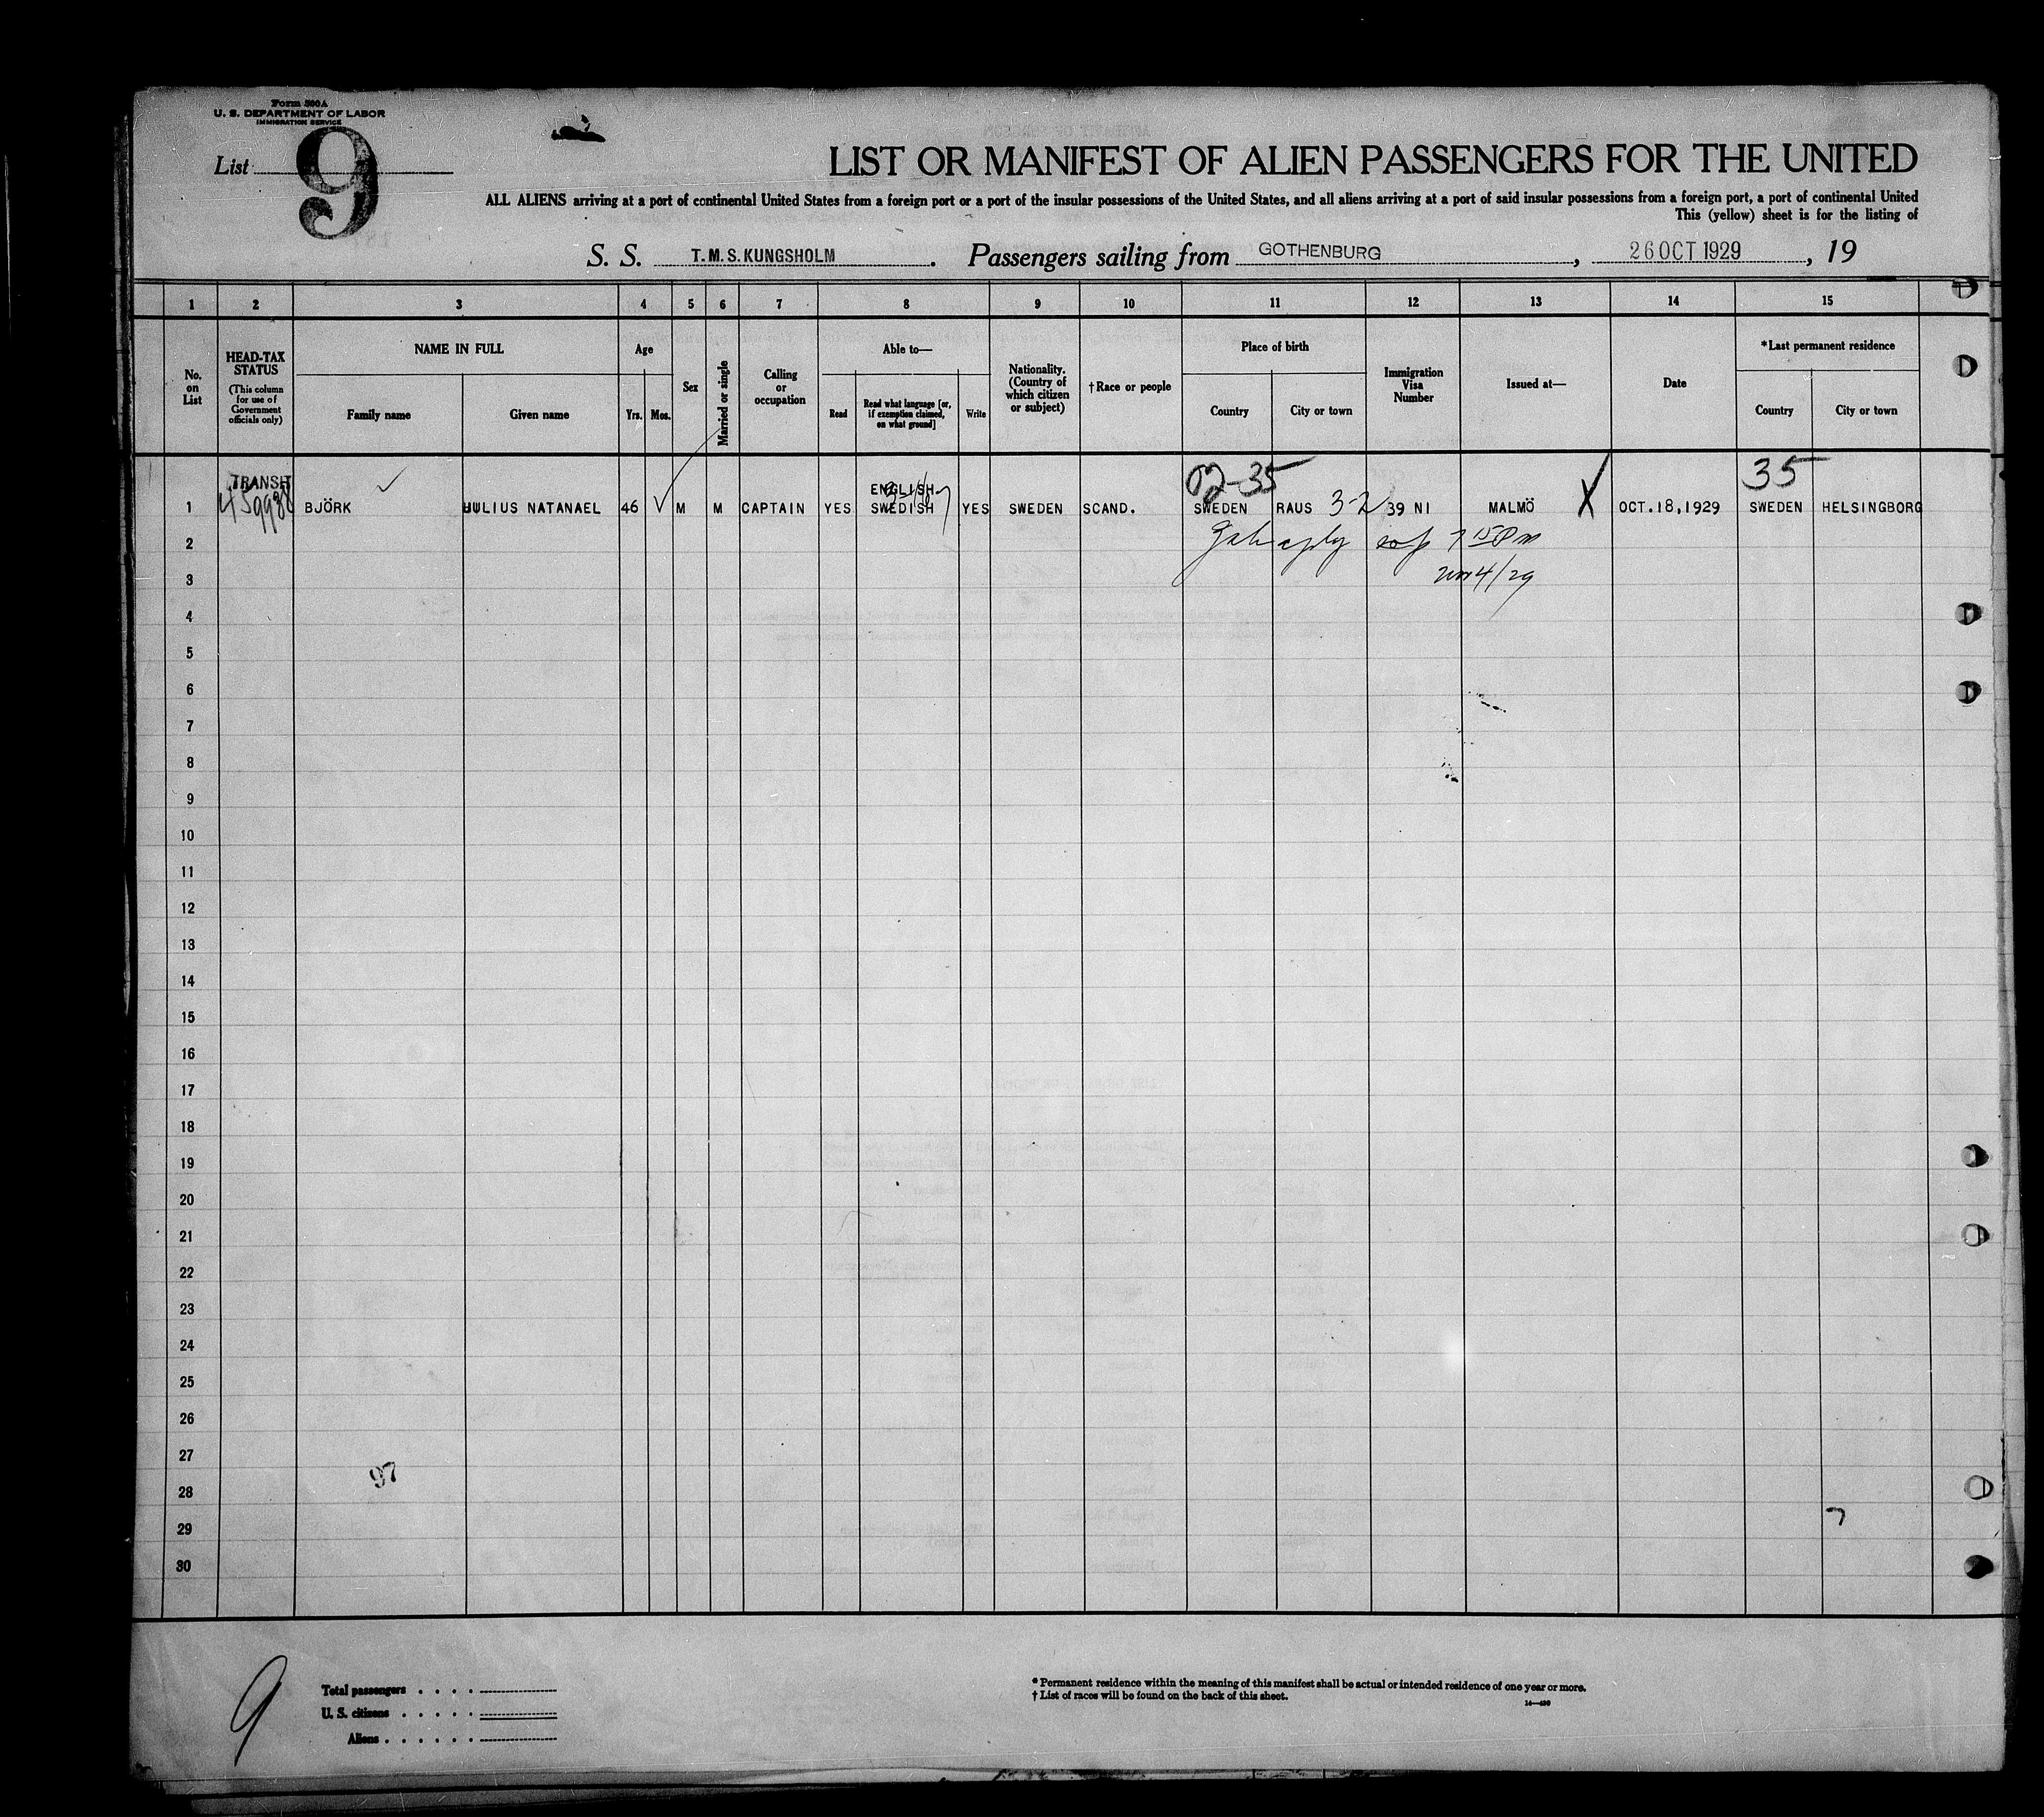 Form 500A
U. S. DEPARTMENT OF LABOR
IMMIGRATION SERVICE
List 9
LIST OR MANIFEST OF ALIEN PASSENGERS FOR THE UNITED
ALL ALIENS arriving at a port of continental United States from a foreign port or a port of the insular possessions of the United States, and all aliens arriving at a port of said insular possessions from a foreign port, a port of continental United
This (yellow) sheet is for the listing of
S. S. T.M.S. KUNGSHOLM. Passengers sailing from GOTHENBURG, 26 OCT 1929, 19
1 2 3 4 5 6 7 8 9 10 11 12 13 14 15
No. on List
HEAD-TAX STATUS
(This column for use of Government officials only)
NAME IN FULL
Family name
Given name
Age
Yrs.
Mos.
Sex
Married or single
Calling or occupation
Able to—
Read
Read what language [or, if exemption claimed, on what ground]
Write
Nationality. (Country of which citizen or subject)
†Race or people
Place of birth
Country
City or town
Immigration Visa Number
Issued at—
Date
*Last permanent residence
Country
City or town
02-35 35
TRANSIT ENGLISH
1 BJÖRK JULIUS NATANAEL 46 M M CAPTAIN YES SWEDISH YES SWEDEN SCAND. SWEDEN RAUS 3-2 39 NI MALMÖ X OCT.18,1929 SWEDEN HELSINGBORG
2
3
4
5
6
7
8
9
10
11
12
13
14
15
16
17
18
19
20
21
22
23
24
25
26
27
97
28
29
30
9
Total passengers
U. S. citizens
Aliens
* Permanent residence within the meaning of this manifest shall be actual or intended residence of one year or more.
† List of races will be found on the back of this sheet.